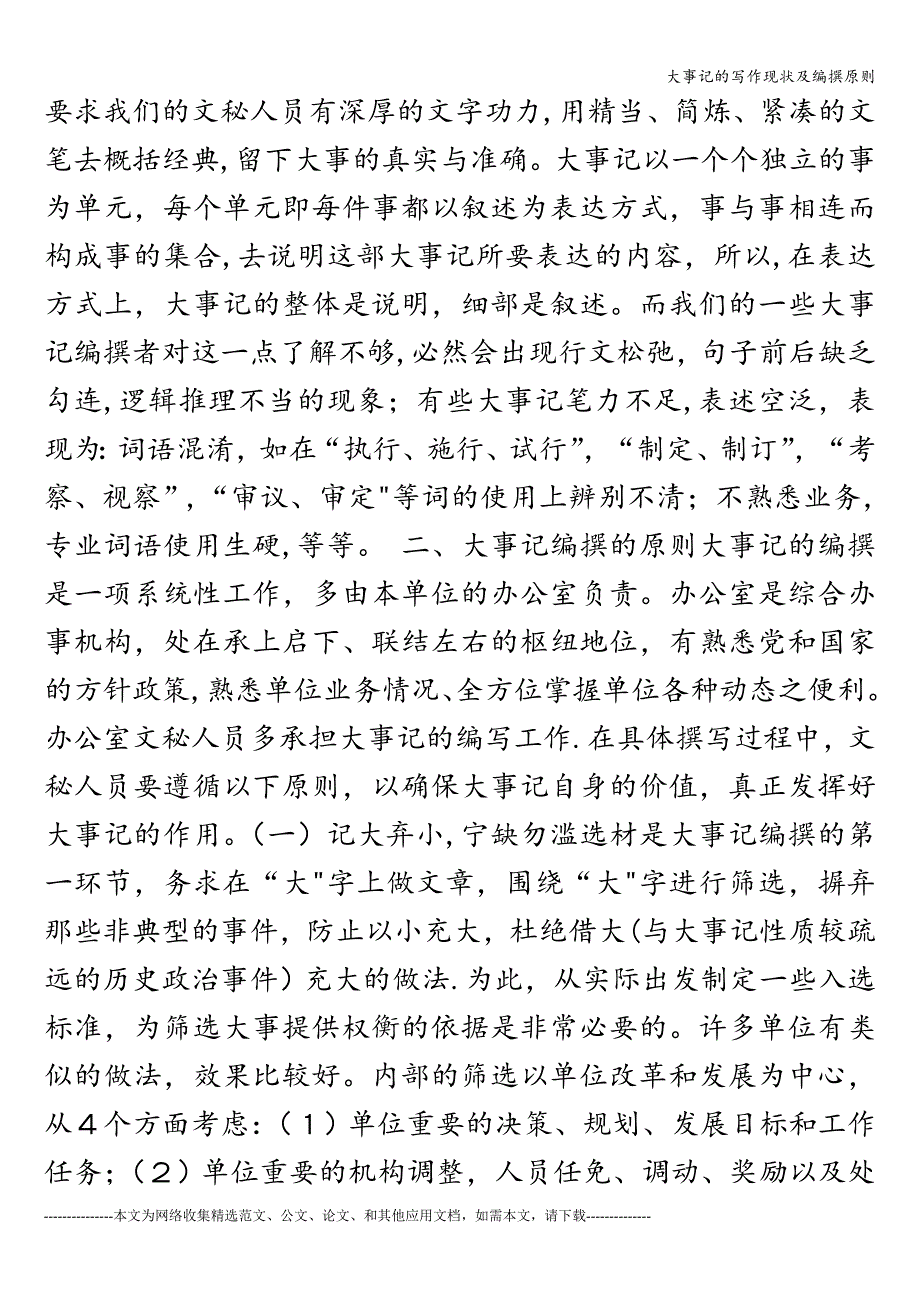 大事记的写作现状及编撰原则
要求我们的文秘人员有深厚的文字功力,用精当、简炼、紧凑的文
笔去概括经典,留下大事的真实与准确。大事记以一个个独立的事
为单元，每个单元即每件事都以叙述为表达方式，事与事相连而
构成事的集合,去说明这部大事记所要表达的内容，所以,在表达
方式上，大事记的整体是说明，细部是叙述。而我们的一些大事
记编撰者对这一点了解不够,必然会出现行文松弛，句子前后缺乏
勾连,逻辑推理不当的现象；有些大事记笔力不足,表述空泛，表
现为:词语混淆，如在“执行、施行、试行”，“制定、制订”，“考
察、视察”，“审议、审定"等词的使用上辨别不清；不熟悉业务，
专业词语使用生硬,等等。 二、大事记编撰的原则大事记的编撰
是一项系统性工作，多由本单位的办公室负责。办公室是综合办
事机构，处在承上启下、联结左右的枢纽地位，有熟悉党和国家
的方针政策,熟悉单位业务情况、全方位掌握单位各种动态之便利。
办公室文秘人员多承担大事记的编写工作.在具体撰写过程中，文
秘人员要遵循以下原则，以确保大事记自身的价值，真正发挥好
大事记的作用。（一）记大弃小,宁缺勿滥选材是大事记编撰的第
一环节，务求在“大"字上做文章，围绕“大"字进行筛选，摒弃
那些非典型的事件，防止以小充大，杜绝借大(与大事记性质较疏
远的历史政治事件）充大的做法.为此，从实际出发制定一些入选
标准，为筛选大事提供权衡的依据是非常必要的。许多单位有类
似的做法，效果比较好。内部的筛选以单位改革和发展为中心，
从４个方面考虑：（１）单位重要的决策、规划、发展目标和工作
任务；（２）单位重要的机构调整，人员任免、调动、奖励以及处
---------------本文为网络收集精选范文、公文、论文、和其他应用文档，如需本文，请下载--------------